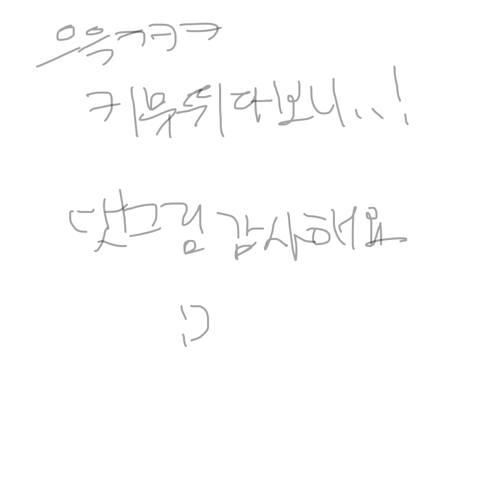 으윽ㅋㅋㅋ
키뮤뛰다보니..!
댓그림 감사해요
:)